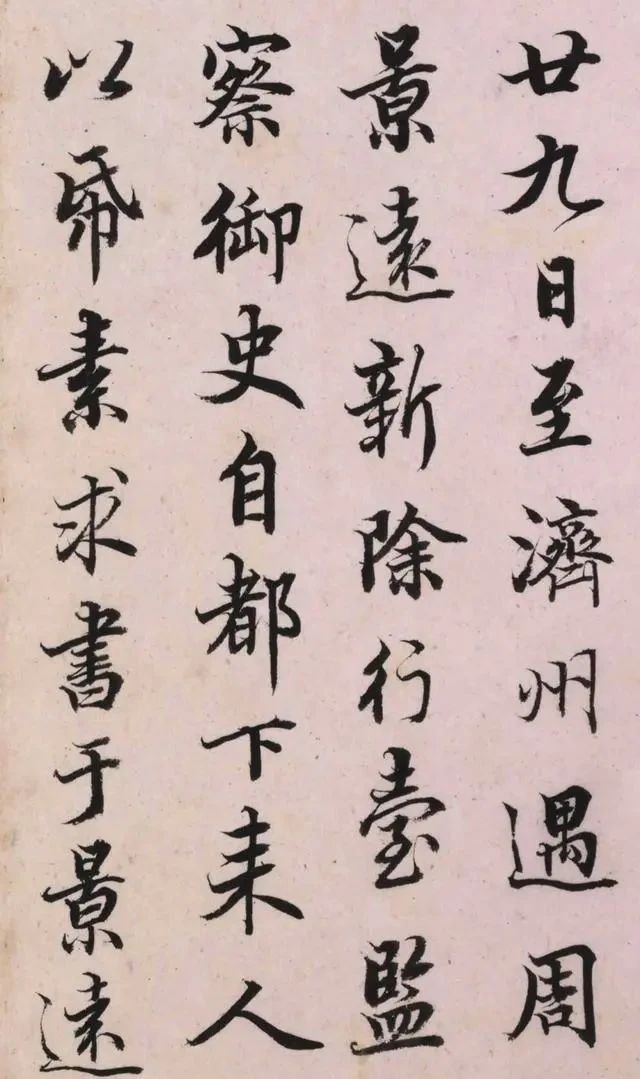 廿九日至濟州遇周
景遠新除行臺監
察御史自都下来人
以帋素求書于景遠